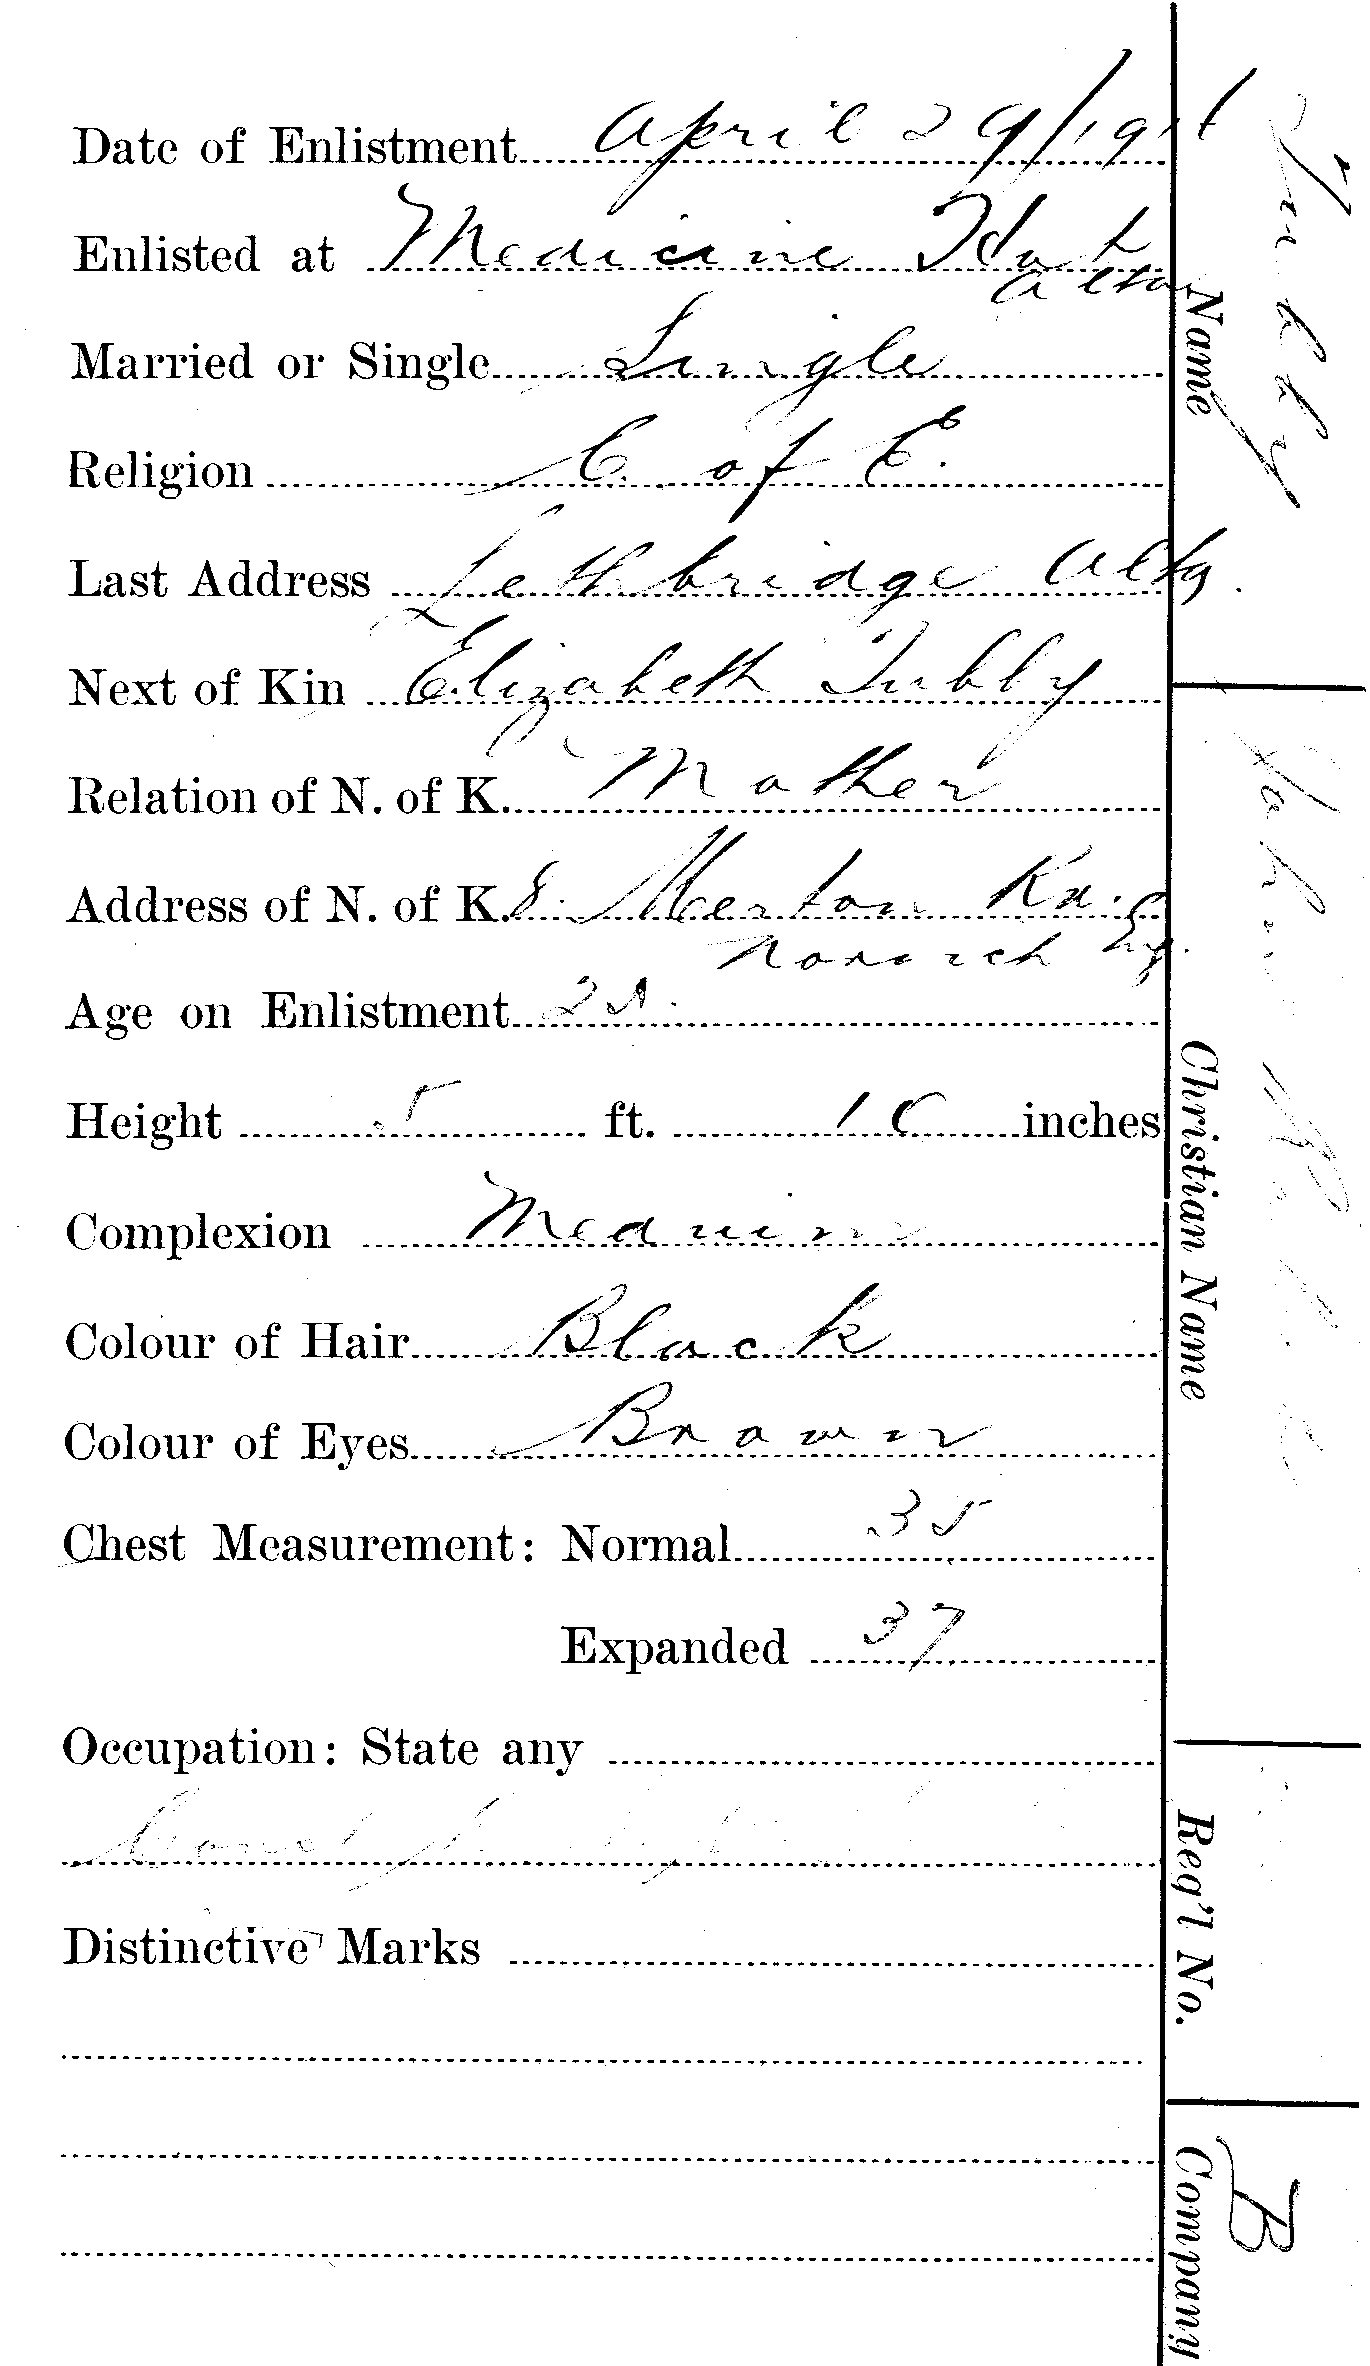 Date of Enlistment April 29/191
Enlisted at Medicine Hat
Alta
Married or Single Single
Religion C. of E.
Last Address Lethbridge Alta.
Next of Kin Elizabeth Tubby
Relation of N. of K. Mother
Address of N. of K. 8. Merton Rd.
Norwich Eng.
Age on Enlistment
Height 5 ft. 10 inches
Complexion Medium
Colour of Hair Black
Colour of Eyes Brown
Chest Measurement: Normal 35
Expanded 37
Occupation: State any
Distinctive Marks
Name Tubby
Christian Name John
Reg'l No.
Company B